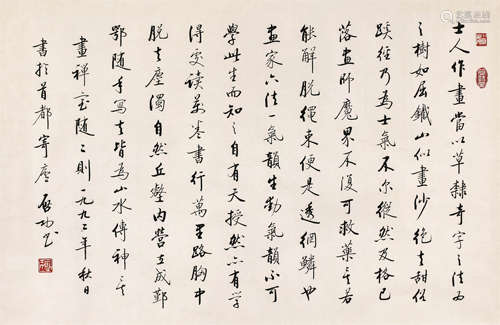 士人作畫當以草隸奇字之法為
之樹如屈鐵山似畫沙絕去甜俗
蹊徑乃為士氣不爾縱然及格已
落畫師魔界不復可救藥矣若
能解脫繩束便是透網鱗也
畫家六法一氣韻生動氣韻不可
學此生而知之自有天授然亦有學
得處讀萬卷書行萬里路胸中
脫去塵濁自然丘壑內營立成鄞
鄂隨手寫去皆為山水傳神矣
畫禪室隨二則一九九二年秋日
書於首都寄廬 啟功書